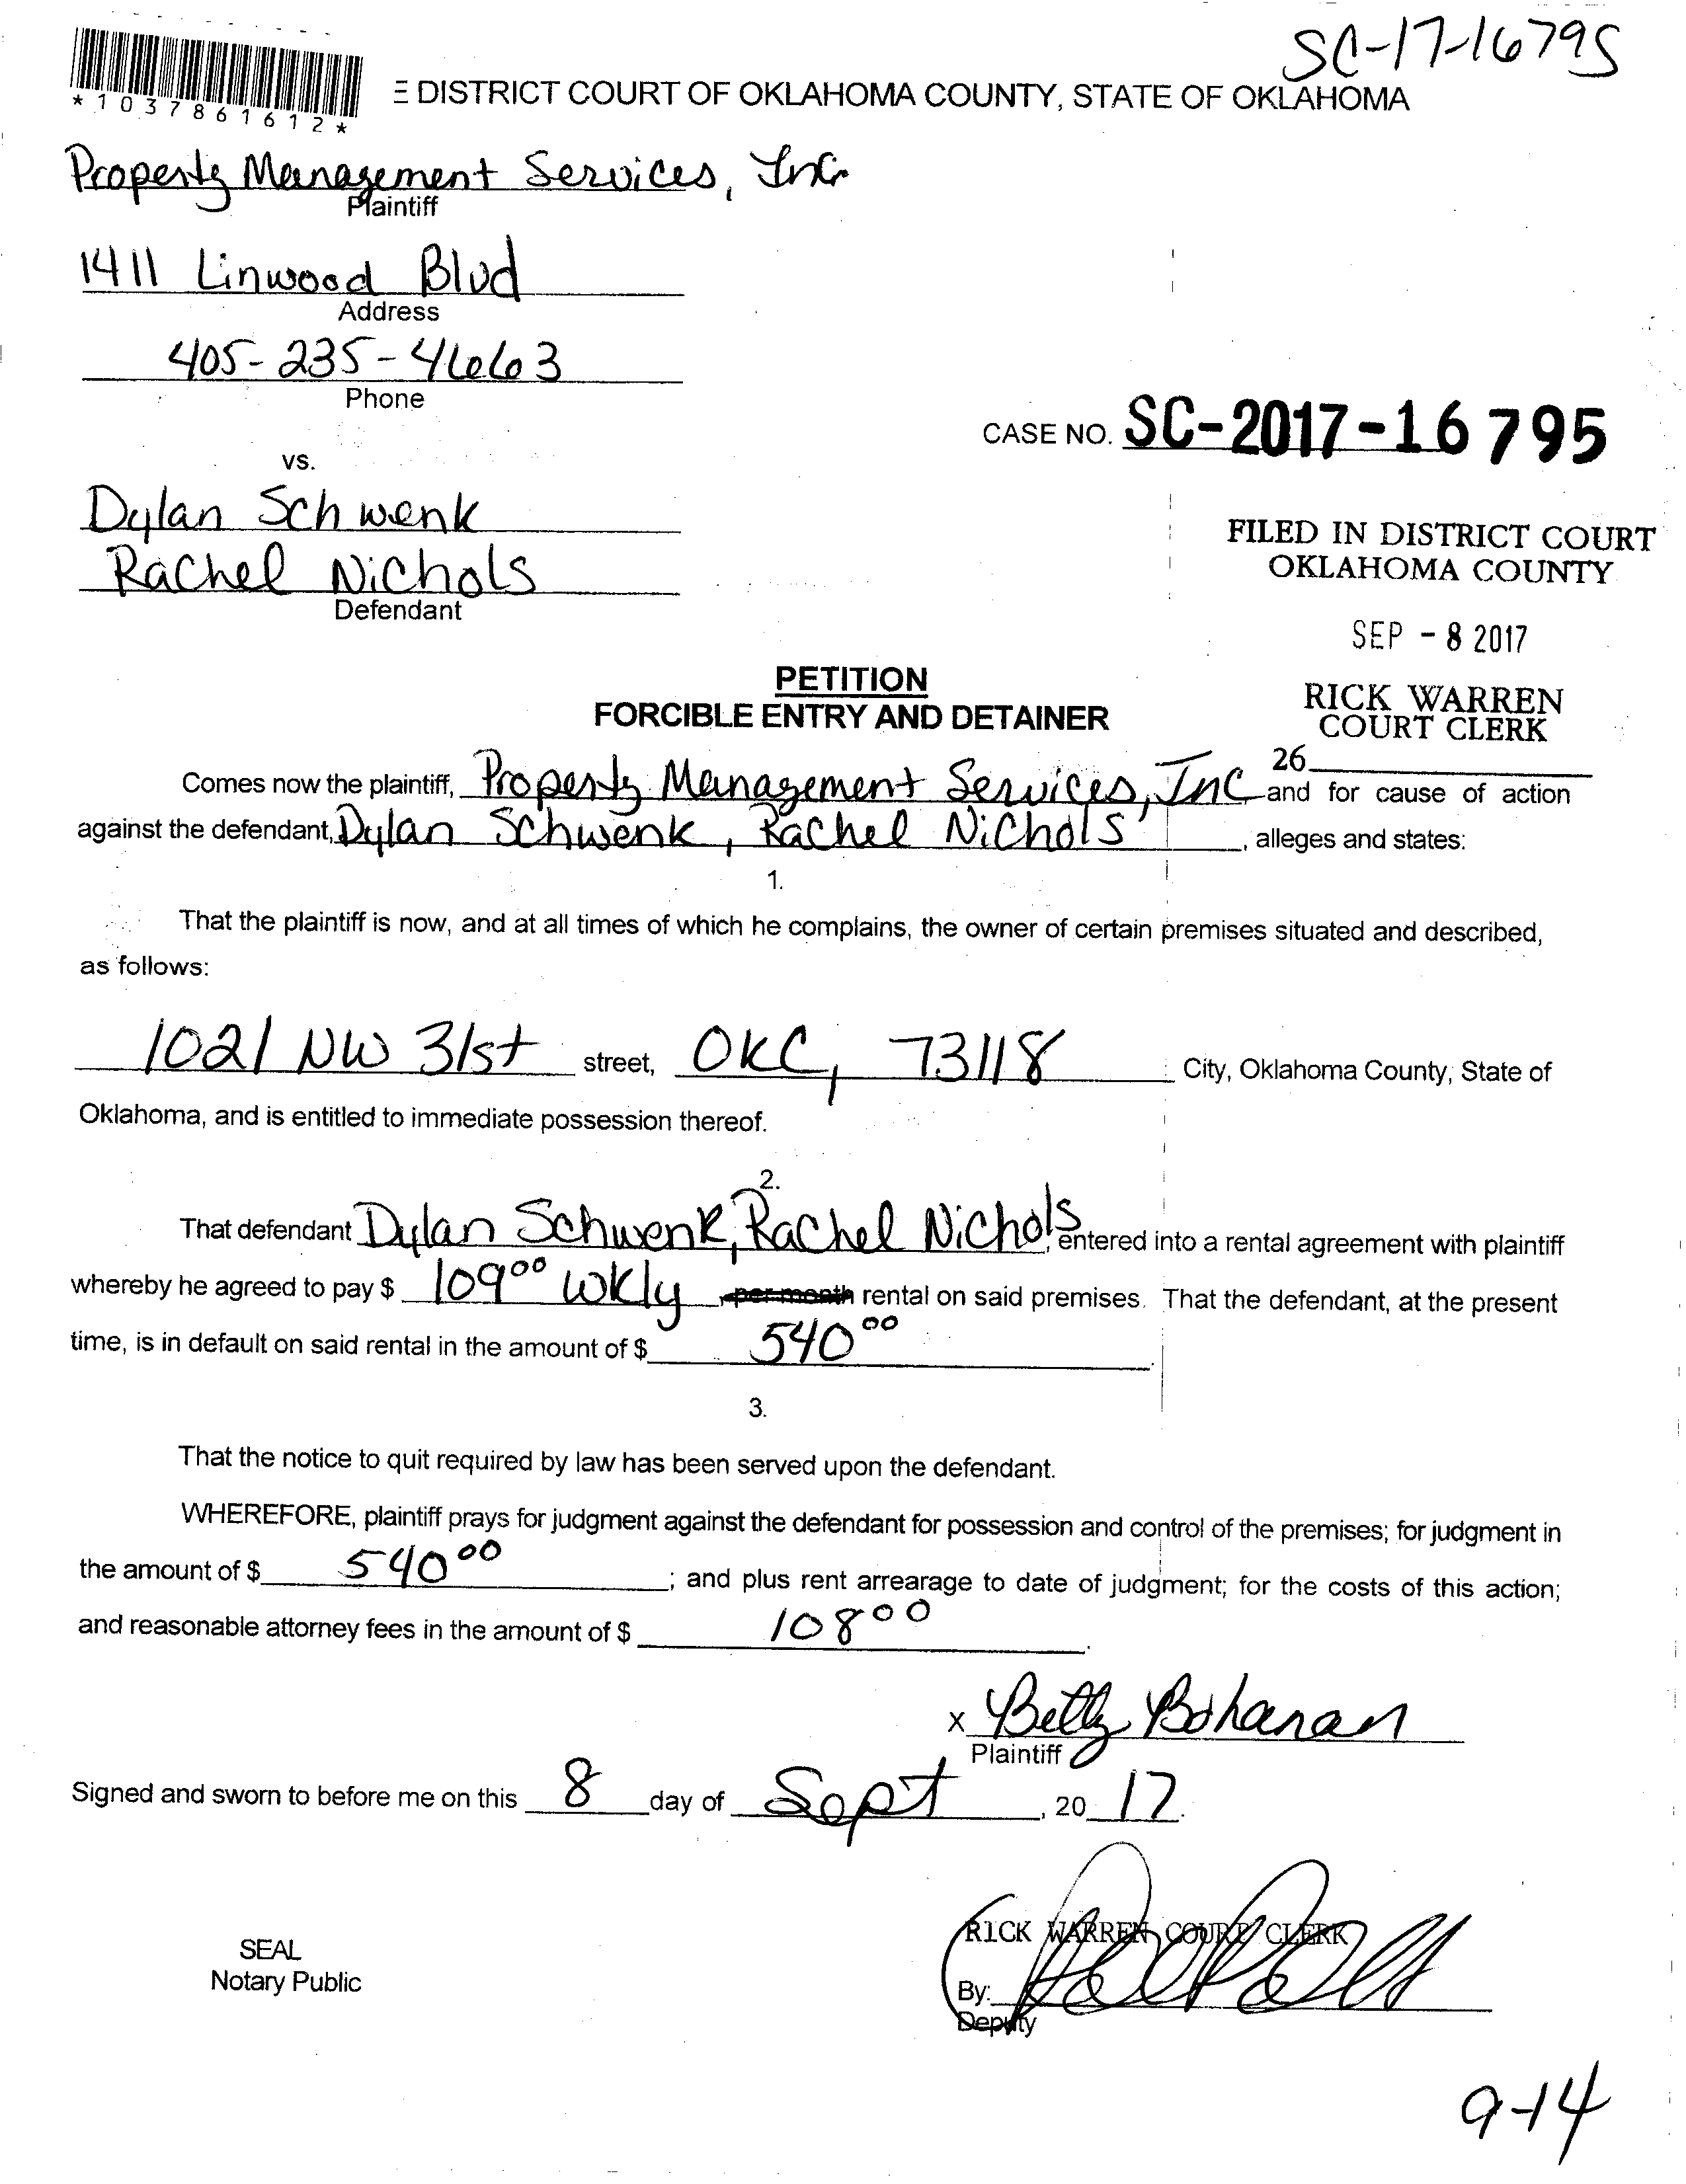 SC-17-16795
*1037861612*
E DISTRICT COURT OF OKLAHOMA COUNTY, STATE OF OKLAHOMA
Property Management Services, Inc.
Plaintiff
1411 Linwood Blvd
Address
405-235-4663
Phone
CASE NO. SC-2017-16795
vs.
Dylan Schwenk
Rachel Nichols
Defendant
FILED IN DISTRICT COURT
OKLAHOMA COUNTY
SEP - 8 2017
RICK WARREN
COURT CLERK
26
PETITION
FORCIBLE ENTRY AND DETAINER
Comes now the plaintiff, Property Management Services, Inc and for cause of action
against the defendant, Dylan Schwenk, Rachel Nichols, alleges and states:
1.
That the plaintiff is now, and at all times of which he complains, the owner of certain premises situated and described,
as follows:
1021 NW 31st street, OKC, 73118 City, Oklahoma County, State of
Oklahoma, and is entitled to immediate possession thereof.
2.
That defendant Dylan Schwenk, Rachel Nichols, entered into a rental agreement with plaintiff
whereby he agreed to pay $ 109⁰⁰ wkly, per month rental on said premises. That the defendant, at the present
time, is in default on said rental in the amount of $ 540⁰⁰.
3.
That the notice to quit required by law has been served upon the defendant.
WHEREFORE, plaintiff prays for judgment against the defendant for possession and control of the premises; for judgment in
the amount of $ 540⁰⁰; and plus rent arrearage to date of judgment; for the costs of this action;
and reasonable attorney fees in the amount of $ 108⁰⁰.
x Betty Bohanan
Plaintiff
Signed and sworn to before me on this 8 day of Sept, 20 17.
RICK WARREN COURT CLERK
SEAL
Notary Public
By:
Deputy
9-14